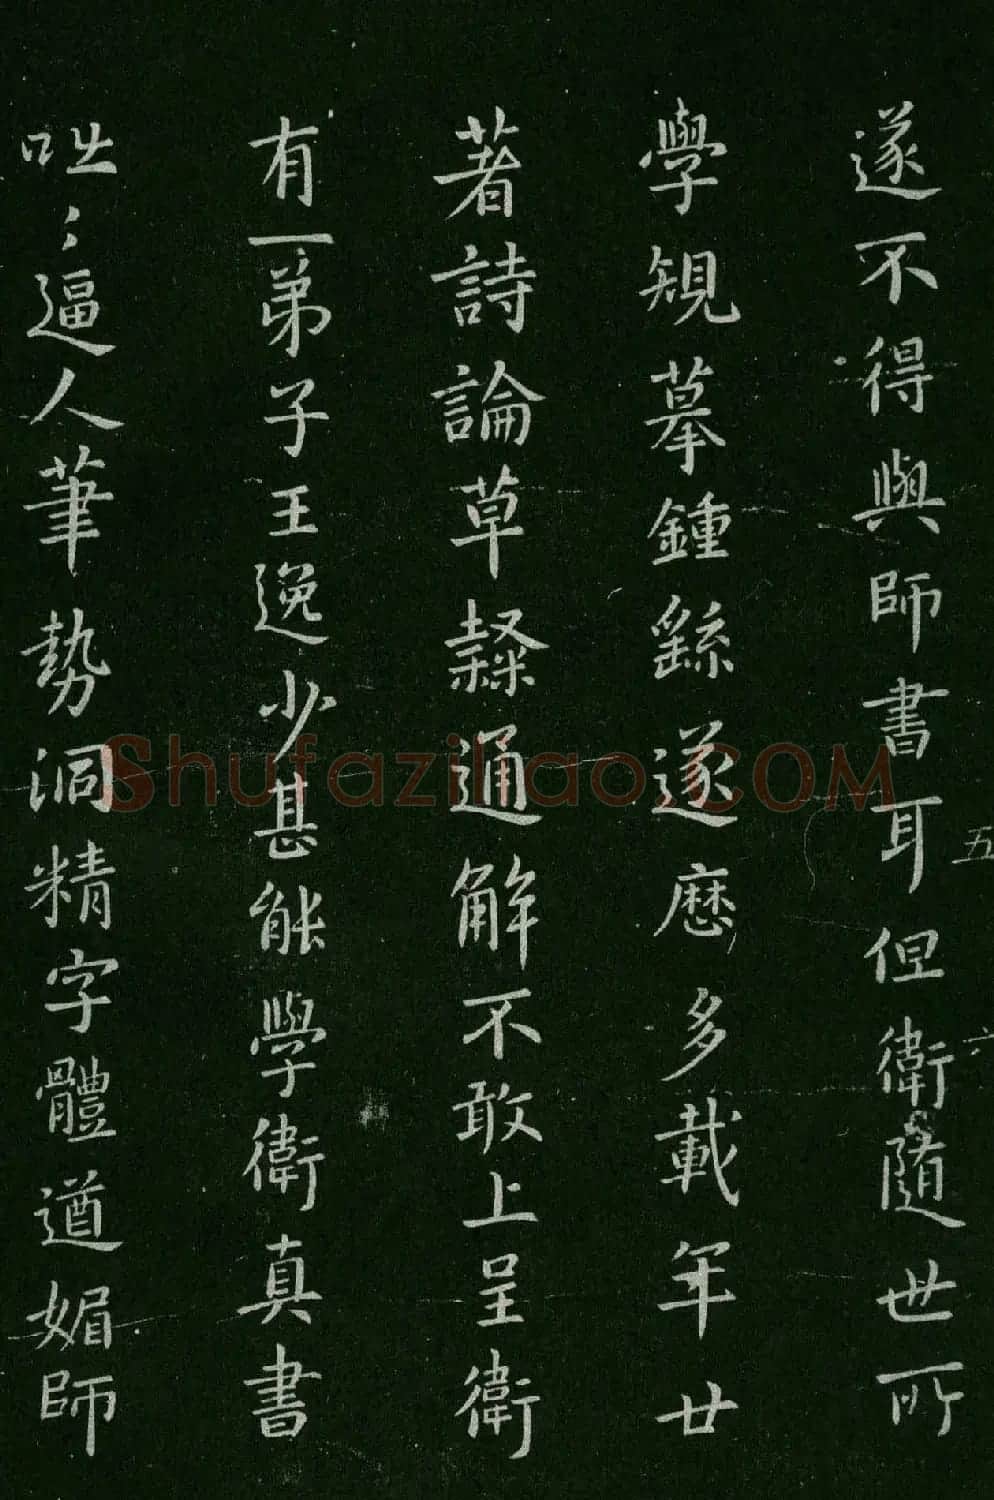 遂不得與師書耳但衛隨世所
學規摹鍾繇遂歷多載年廿
著詩論草隸通解不敢上呈衛
有一弟子王逸少甚能學衛真書
咄〻逼人筆勢洞精字體遒媚師
五
六
ShufaziliaO.COM